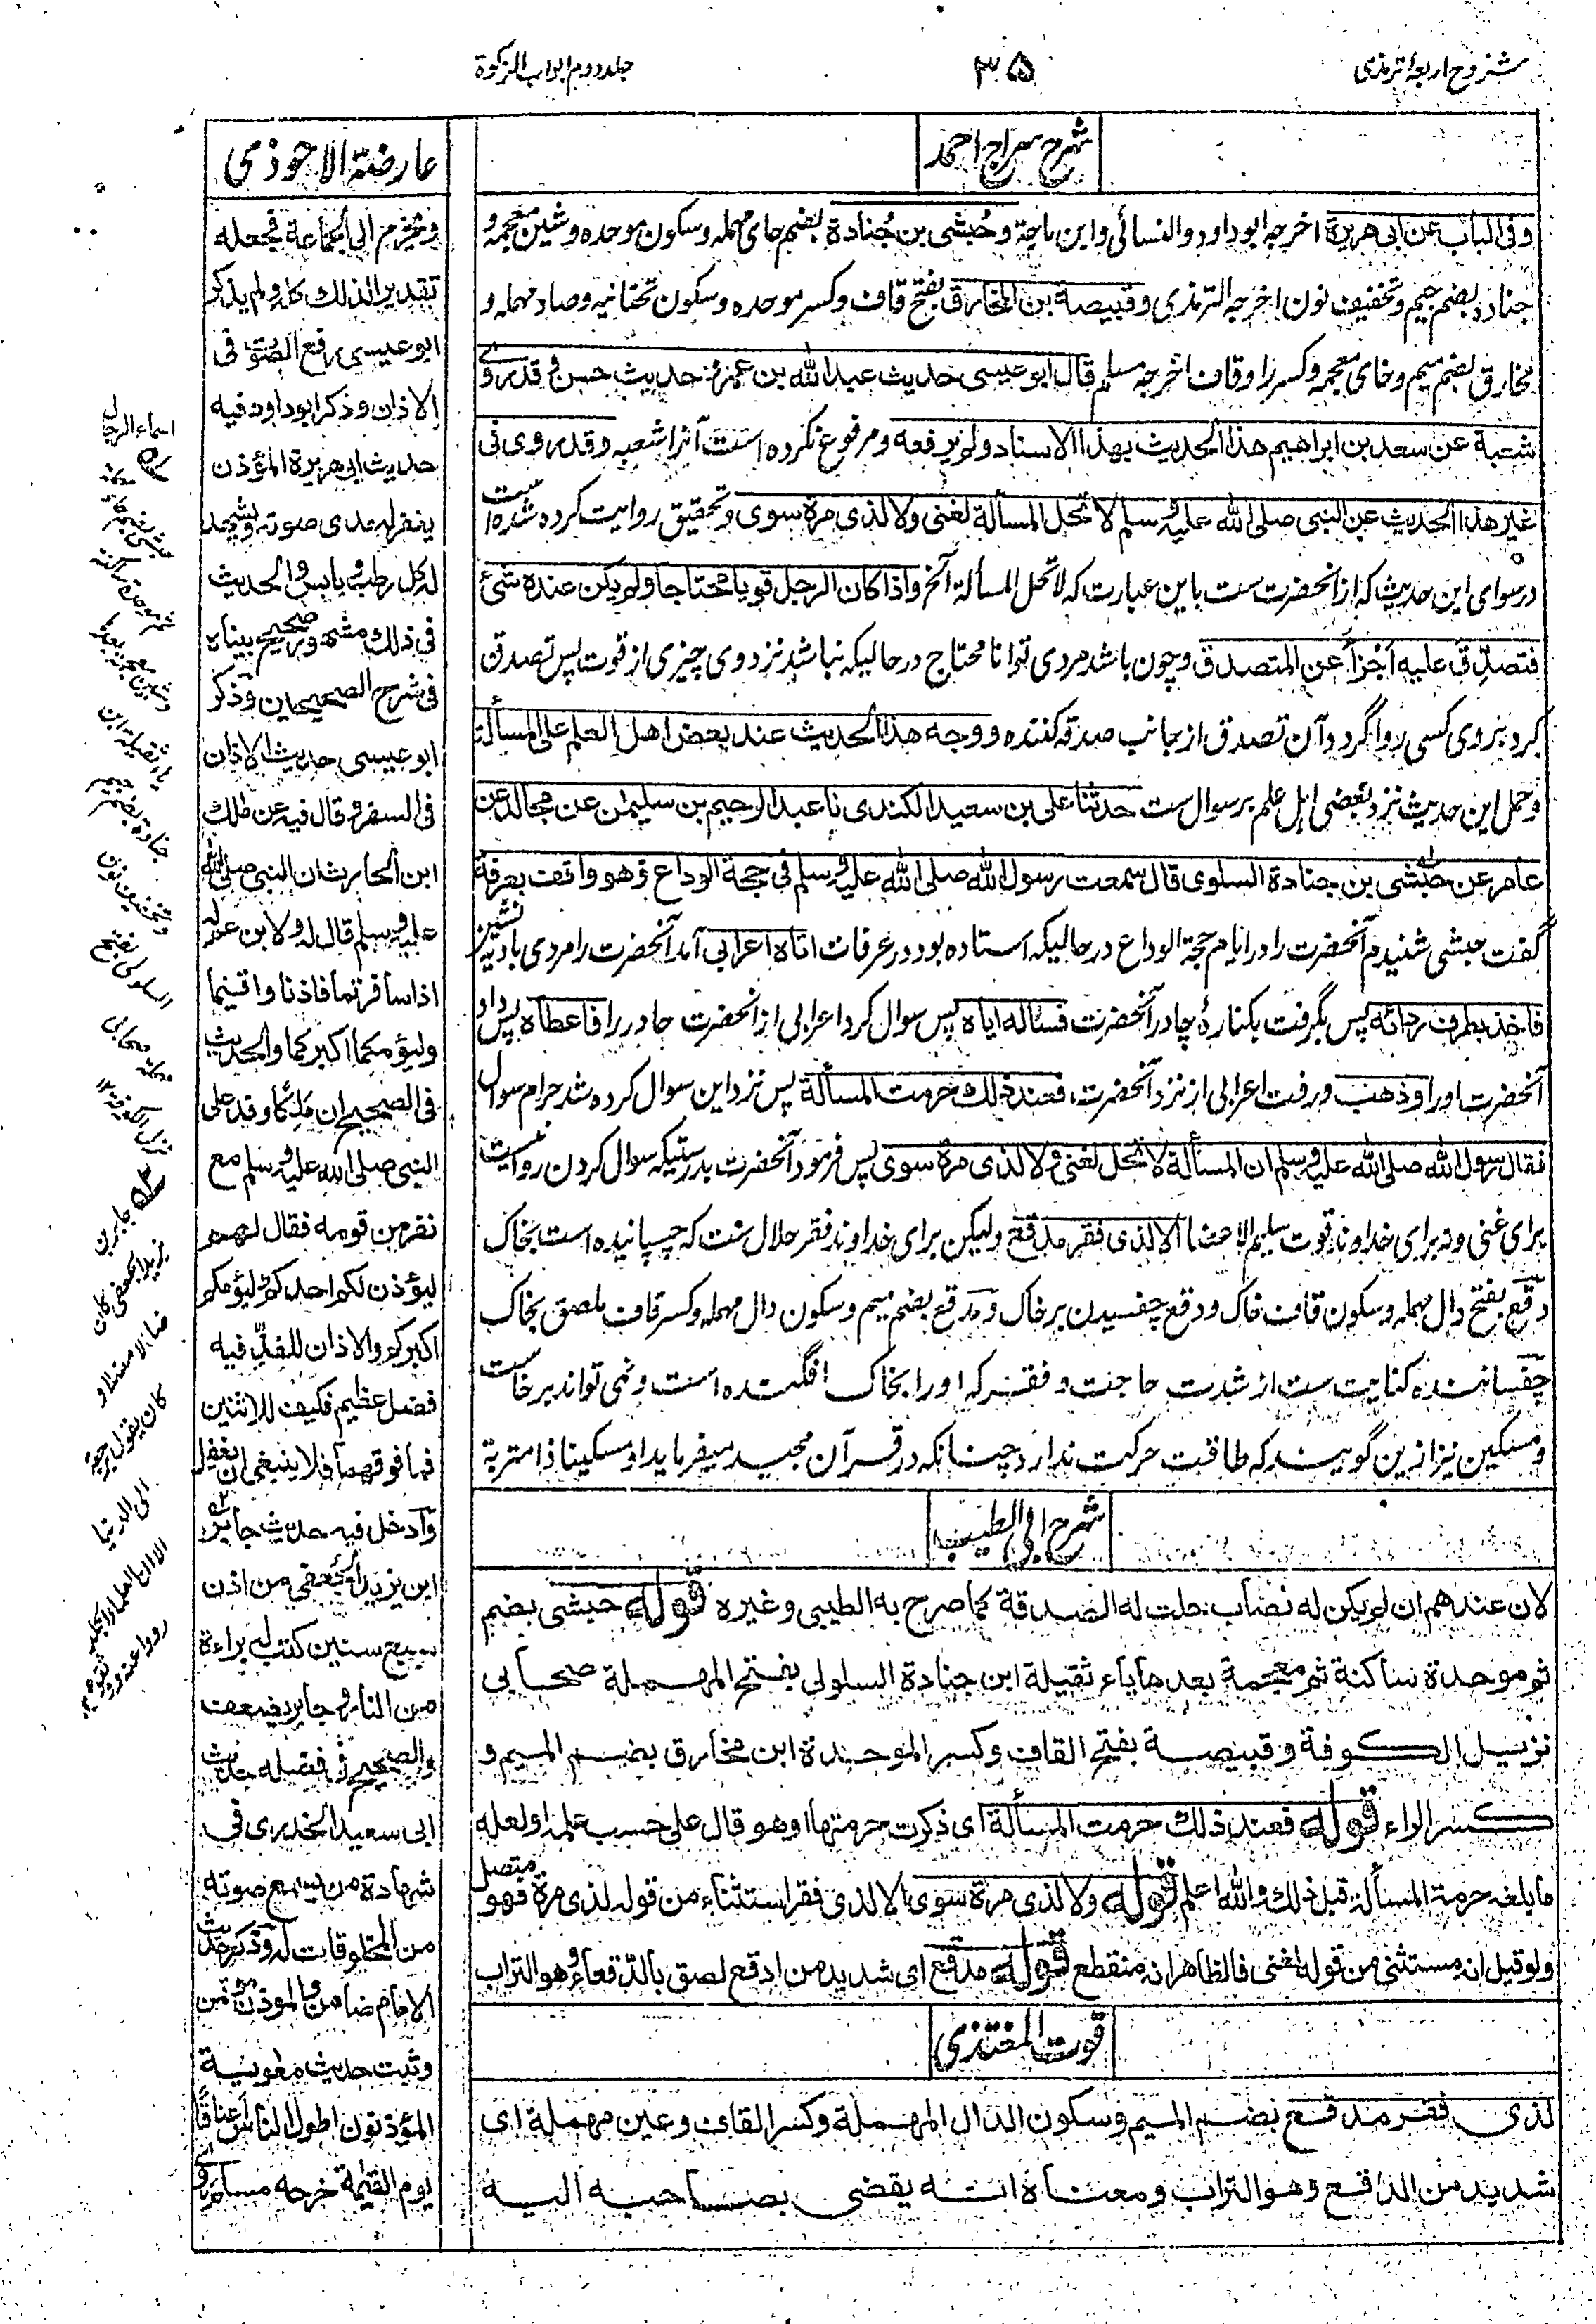 شروح اربعهٔ ترمذی
۳۵
جلد دوم ابواب الزکوة
شرح سراج احمد
وفی الباب عن ابی هریرة اخرجه ابو داود والنسائی وابن ماجة وحُبشی بن جُنادة بضم حای مهمله وسکون موحده وشین معجمه و
جناده بضم جیم وتخفیف نون اخرجه الترمذی وقبیصة بن المخارق بفتح قاف وکسر موحده وسکون تحتانیه وصاد مهمله و
مخارق بضم میم وخای معجمه وکسر را وقاف اخرجه مسلم قال ابو عیسی حدیث عبد الله بن عمرو حدیث حسن وقد روی
شعبة عن سعد بن ابراهیم هذا الحدیث بهذا الاسناد ولم یرفعه ومرفوع نکرده است آنرا شعبه وقد روی فی
غیر هذا الحدیث عن النبی صلی الله علیه وسلم لا تحل المسألة لغنی ولا لذی مرة سوی وتحقیق روایت کرده شده است
در سوای این حدیث که از آنحضرت ست باین عبارت که لا تحل المسألة آلخ واذا کان الرجل قویا محتاجا ولم یکن عنده شئ
فتصدّق علیه اَجْزأَ عن المتصدق وچون باشد مردی توانا محتاج درحالیکه نباشد نزد وی چیزی از قوت پس تصدق
کرد بروی کسی روا گردد آن تصدق از جانب صدقه کننده ووجه هذا الحدیث عند بعض اهل العلم علی المسألة
وحمل این حدیث نزد بعضی اهل علم بر سوال ست حدثنا علی بن سعید الکندی نا عبد الرحیم بن سلیمن عن مجالد عن
عامر عن حُبشی بن جنادة السلولی قال سمعت رسول الله صلی الله علیه وسلم فی حجة الوداع وهو واقف بعرفة
گفت حبشی شنیدم آنحضرت را در ایام حجة الوداع درحالیکه استاده بود در عرفات اتاه اعرابی آمد آنحضرت را مردی بادیه نشین
فاخذ بطرف ردائه پس بگرفت بکنارهٔ چادر آنحضرت فسأله ایاه پس سوال کرد اعرابی از آنحضرت چادر را فاعطاه پس داد
آنحضرت اورا وذهب ورفت اعرابی از نزد آنحضرت، فعند ذلک حرمت المسألة پس نزد این سوال کرده شد حرام سوال
فقال رسول الله صلی الله علیه وسلم ان المسألة لا تحل لغنی ولا لذی مرة سوی پس فرمود آنحضرت بدرستیکه سوال کردن روا نیست
برای غنی ونه برای خداوند قوت سلیم الاعضا الا لذی فقر مدقع ولیکن برای خداوند فقر حلال ست که چسپانیده است بخاک
دقع بفتح دال مهمله وسکون قاف خاک ودقع چفسیدن بر خاک ومدقع بضم میم وسکون دال مهمله وکسر قاف ملصق بخاک
چفسانیده کنایت ست از شدت حاجت وفقر که اورا بخاک افگنده است ونمی تواند برخاست
ومسکین نیز ازین گویند که طاقت حرکت ندارد چنانکه در قرآن مجید میفرماید او مسکینا ذا متربة
شرح ابی الطیب
لان عندهم ان لم یکن له نصاب حلت له الصدقة کما صرح به الطیبی وغیره قوله حبشی بضم
ثم موحدة ساکنة ثم معجمة بعدها یاء ثقیلة ابن جنادة السلولی بفتح المهملة صحابی
نزیل الکوفة وقبیصة بفتح القاف وکسر الموحدة ابن مخارق بضم المیم و
کسر الراء قوله فعند ذلک حرمت المسألة ای ذکرت حرمتها وهو قال علی حسب علمه ولعله
ما بلغه حرمة المسألة قبل ذلک والله اعلم قوله ولا لذی مرة سوی الا لذی فقر استثناء من قوله لذی مرة فهو متصل
ولو قیل انه مستثنی من قوله لغنی فالظاهر انه منقطع قوله مدقع ای شدید من ادقع لصق بالدقعاء وهو التراب
قوت المغتذی
لذی فقر مدقع بضم المیم وسکون الدال المهملة وکسر القاف وعین مهملة ای
شدید من الدقع وهو التراب ومعناه انه یقضی بصاحبه الیه
عارضة الاحوذی
تقدیر الذلک کله ولم یذکر
ابو عیسی رفع الصوت فی
الاذان وذکر ابو داود فیه
حدیث ابی هریرة المؤذن
یغفر له مدی صوته ویشهد
له کل رطب ویابس والحدیث
فی ذلک مشهور صحیح بیناه
فی شرح الصحیحین وذکر
ابو عیسی حدیث الاذان
فی السفر وقال فیه عن ملک
ابن الحارث ان النبی صلی الله
علیه وسلم قال له ولابن عم له
اذا سافرتما فاذنا واقیما
ولیؤمکما اکبرکما والحدیث
فی الصحیح ان ملکا وفد علی
النبی صلی الله علیه وسلم مع
نفر من قومه فقال لهم
لیؤذن لکم احدکم ولیؤمکم
اکبرکم والاذان للفذ فیه
فضل عظیم فکیف للاثنین
فما فوقهما فلا ینبغی ان یغفل
وادخل فیه حدیث جابر
ابن یزید الجعفی من اذن
سبع سنین کتب له براءة
من النار وجابر ضعیف
والصحیح فی فضله حدیث
ابی سعید الخدری فی
شهادة من یسمع صوته
من المخلوقات له وذکر حدیث
الامام ضامن والموذن مؤتمن
وثبت حدیث معویة
المؤذنون اطول الناس اعناقًا
یوم القیمة خرجه مسلم
اسماء الرجال